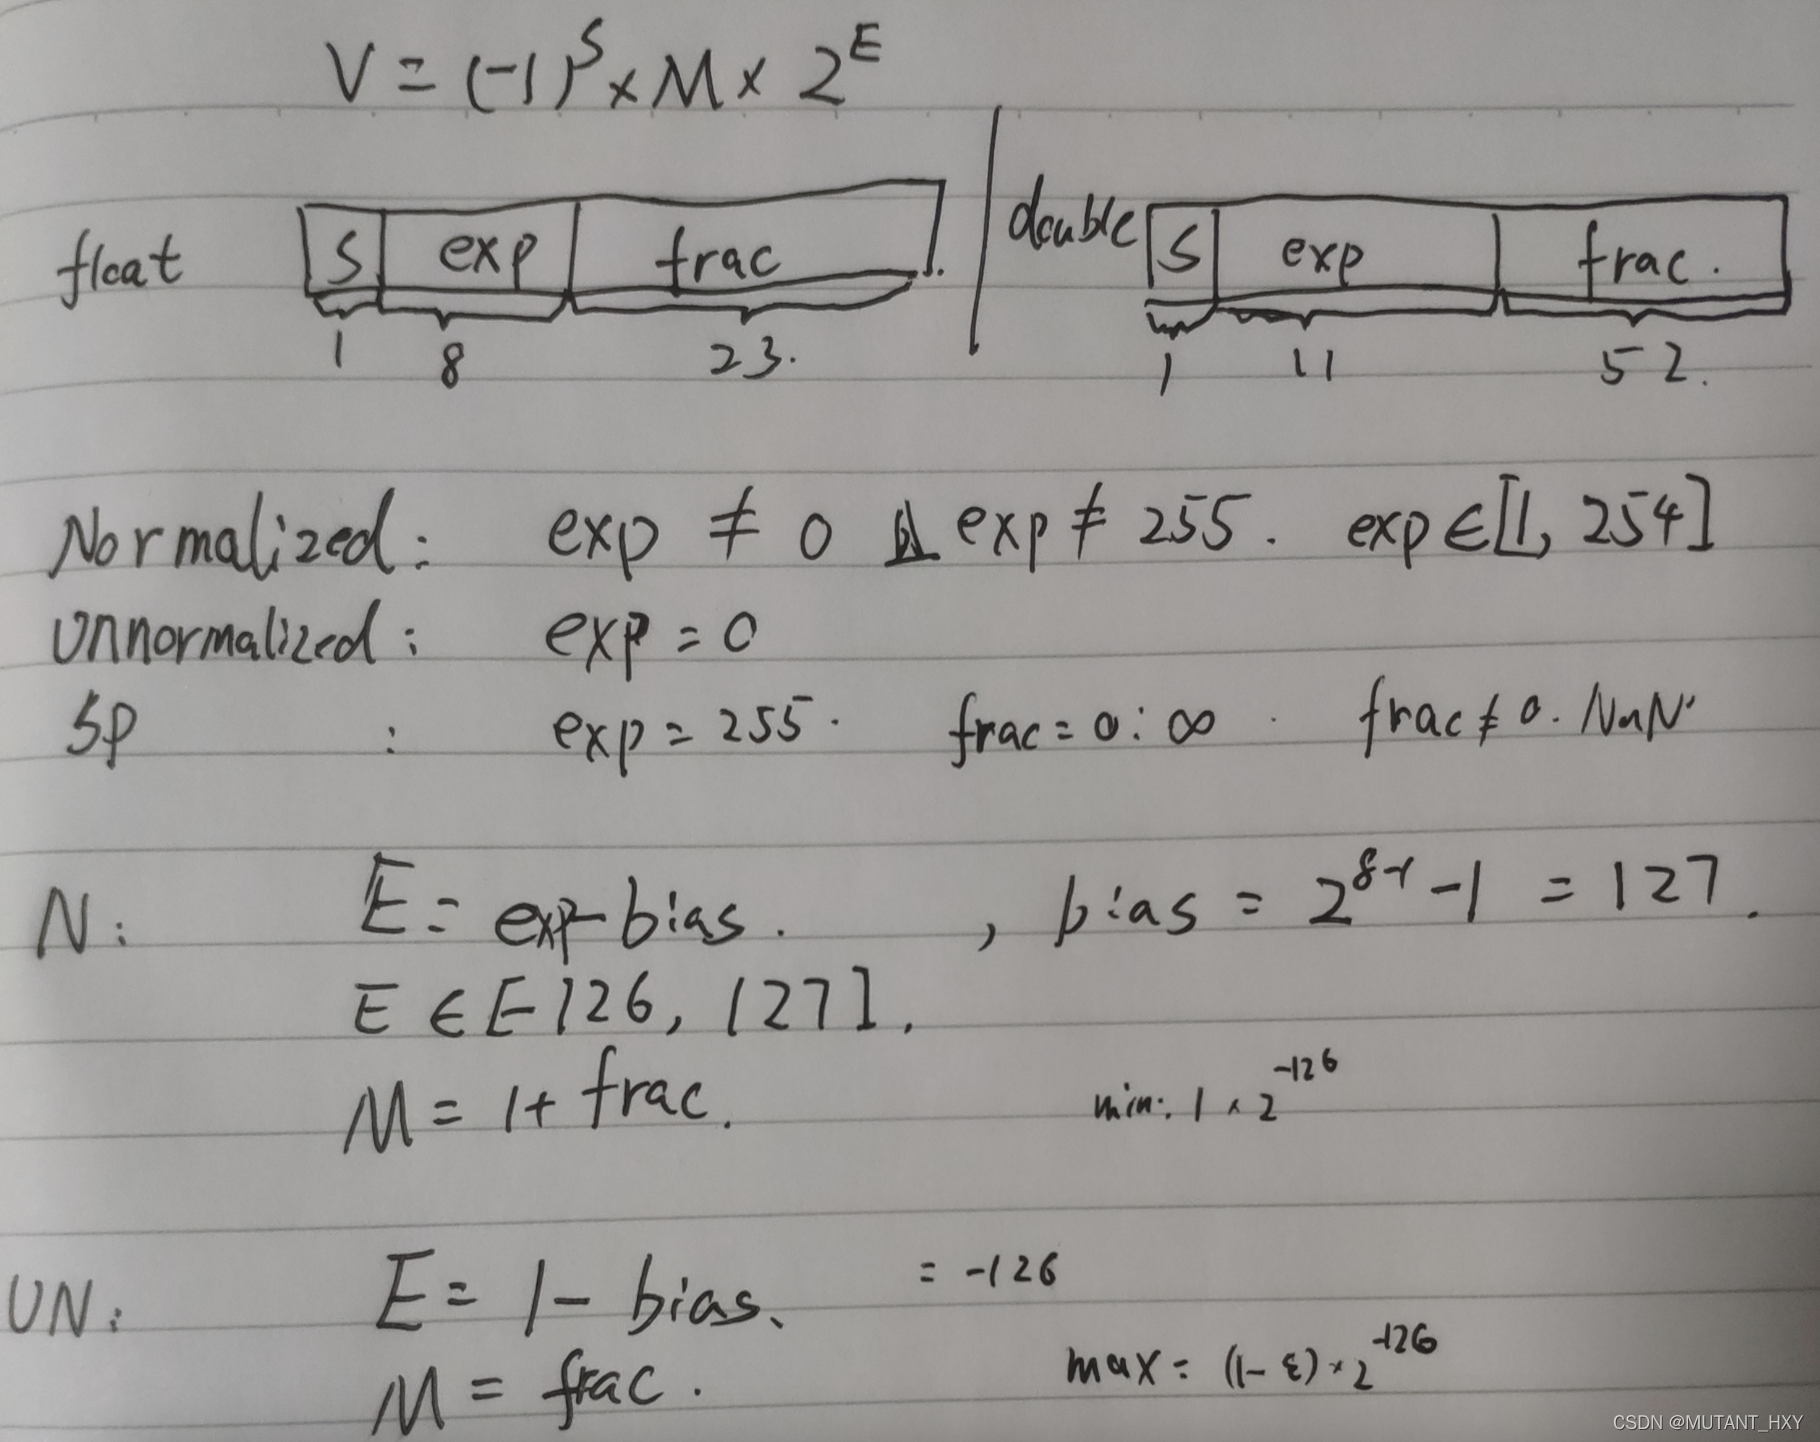 V = (-1)^S × M × 2^E
float S exp frac
1 8 23.
double S exp frac.
1 11 52.
Normalized: exp ≠ 0 且 exp ≠ 255. exp ∈ [1, 254]
Unnormalized: exp = 0
SP : exp = 255. frac = 0: ∞. frac ≠ 0. NaN.
N: E = exp - bias. , bias = 2^{8-1} - 1 = 127.
E ∈ [-126, 127].
M = 1 + frac. min: 1 × 2^{-126}
UN: E = 1 - bias. = -126
M = frac. max = (1-ε) × 2^{-126}
CSDN @MUTANT_HXY